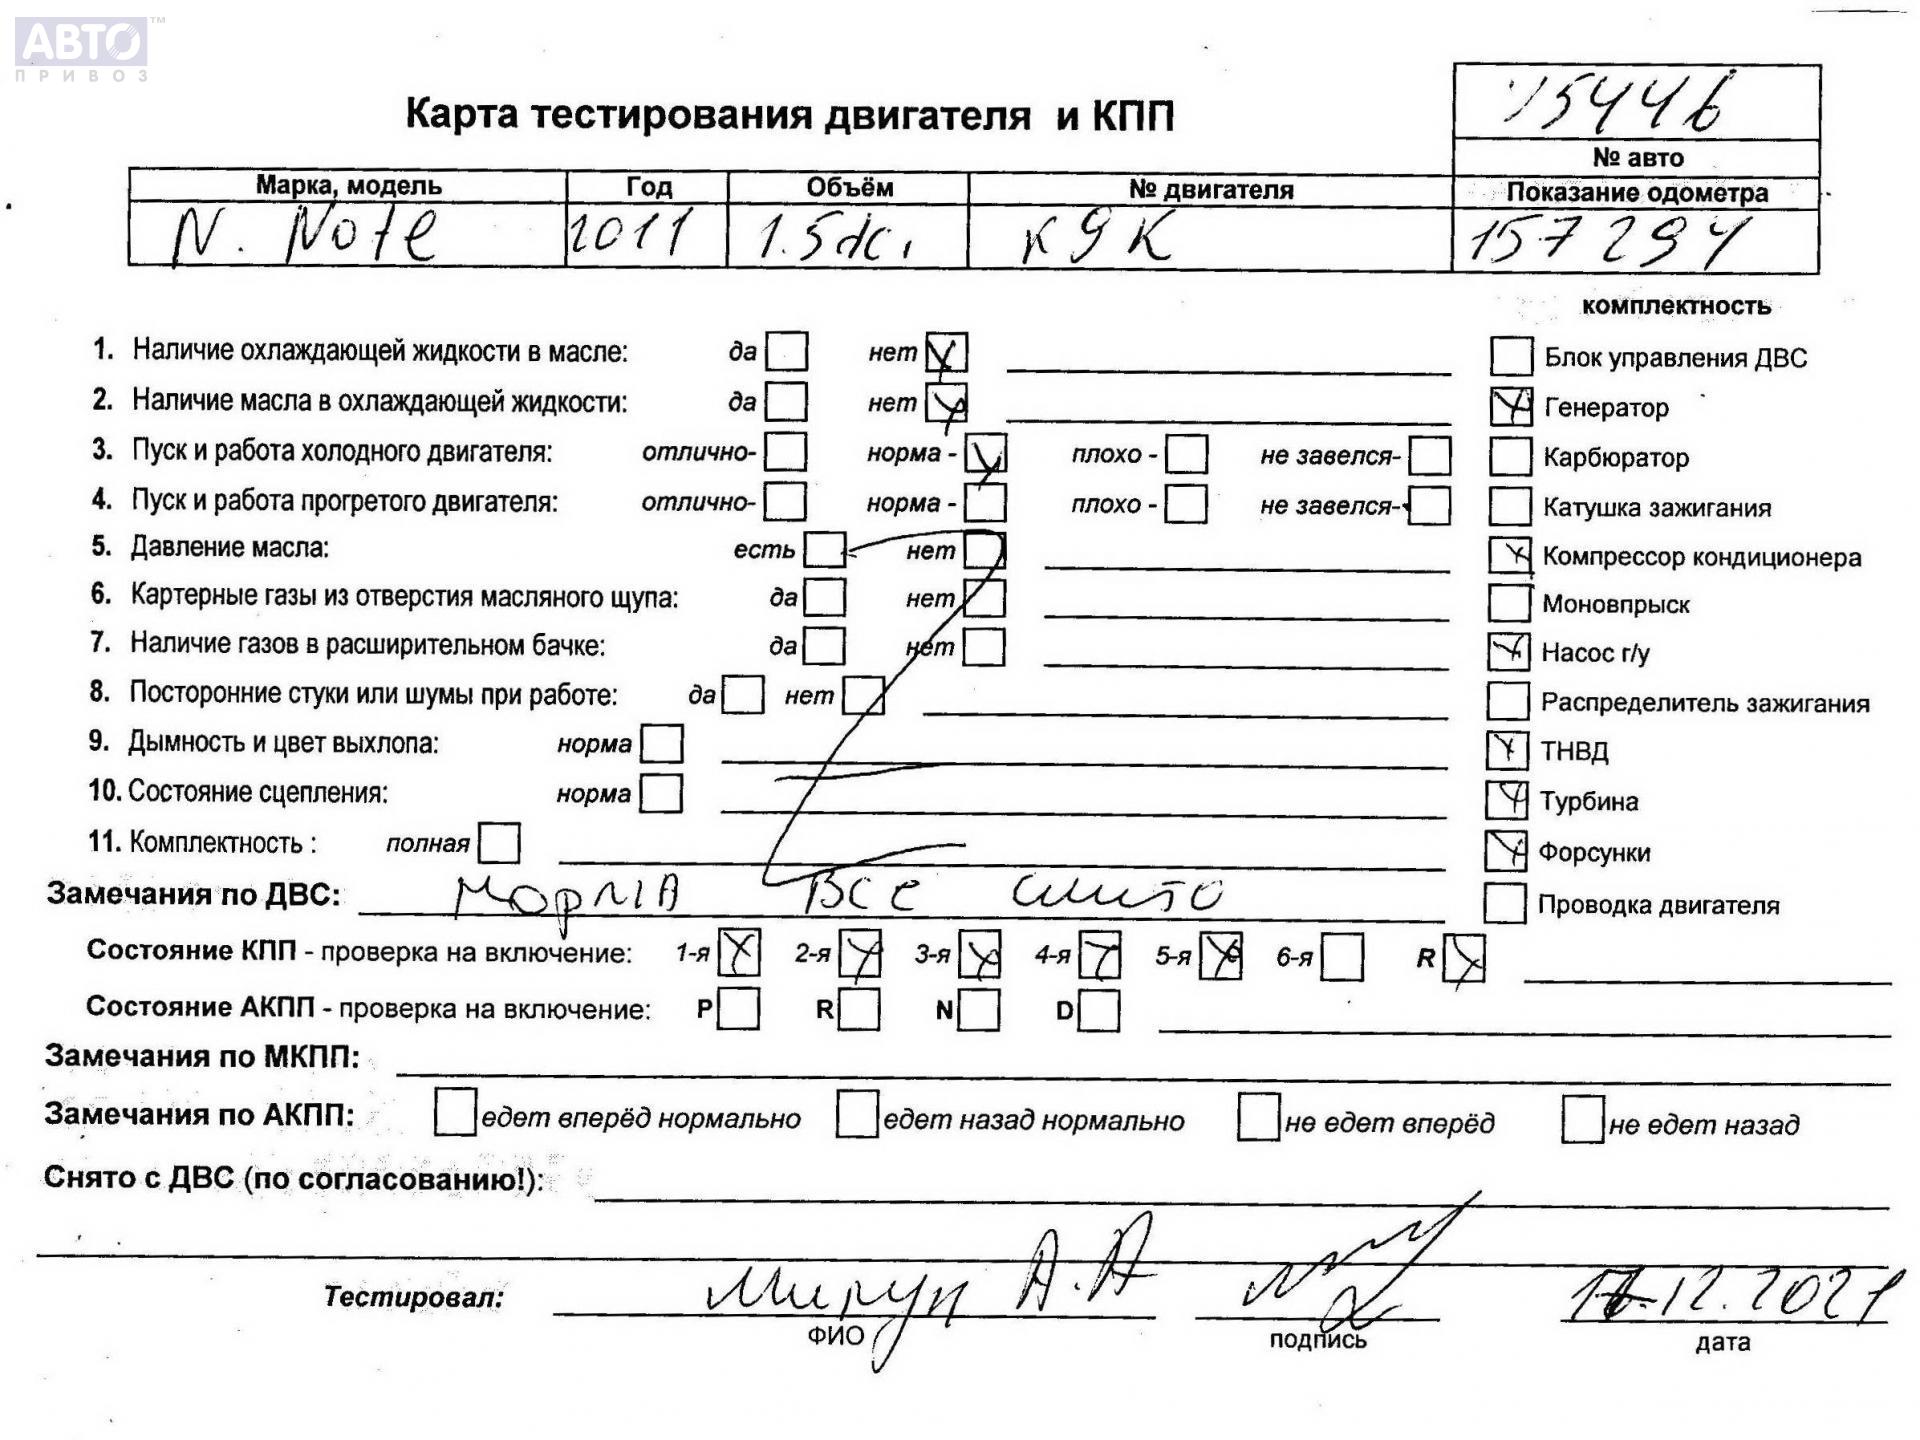 АВТО™
ПРИВОЗ
45446
Карта тестирования двигателя и КПП
№ авто
Марка, модель Год Объём № двигателя Показание одометра
N. Note 2011 1.5dci K9K 157294
комплектность
1. Наличие охлаждающей жидкости в масле: да нет Блок управления ДВС
2. Наличие масла в охлаждающей жидкости: да нет Генератор
3. Пуск и работа холодного двигателя: отлично- норма - плохо - не завелся- Карбюратор
4. Пуск и работа прогретого двигателя: отлично- норма - плохо - не завелся- Катушка зажигания
5. Давление масла: есть нет Компрессор кондиционера
6. Картерные газы из отверстия масляного щупа: да нет Моновпрыск
7. Наличие газов в расширительном бачке: да нет Насос г/у
8. Посторонние стуки или шумы при работе: да нет Распределитель зажигания
9. Дымность и цвет выхлопа: норма ТНВД
10. Состояние сцепления: норма Турбина
11. Комплектность : полная Форсунки
Замечания по ДВС: норма все Проводка двигателя
Состояние КПП - проверка на включение: 1-я 2-я 3-я 4-я 5-я 6-я R
Состояние АКПП - проверка на включение: P R N D
Замечания по МКПП:
Замечания по АКПП: едет вперёд нормально едет назад нормально не едет вперёд не едет назад
Снято с ДВС (по согласованию!):
Тестировал: А.А .12.2021
ФИО подпись дата